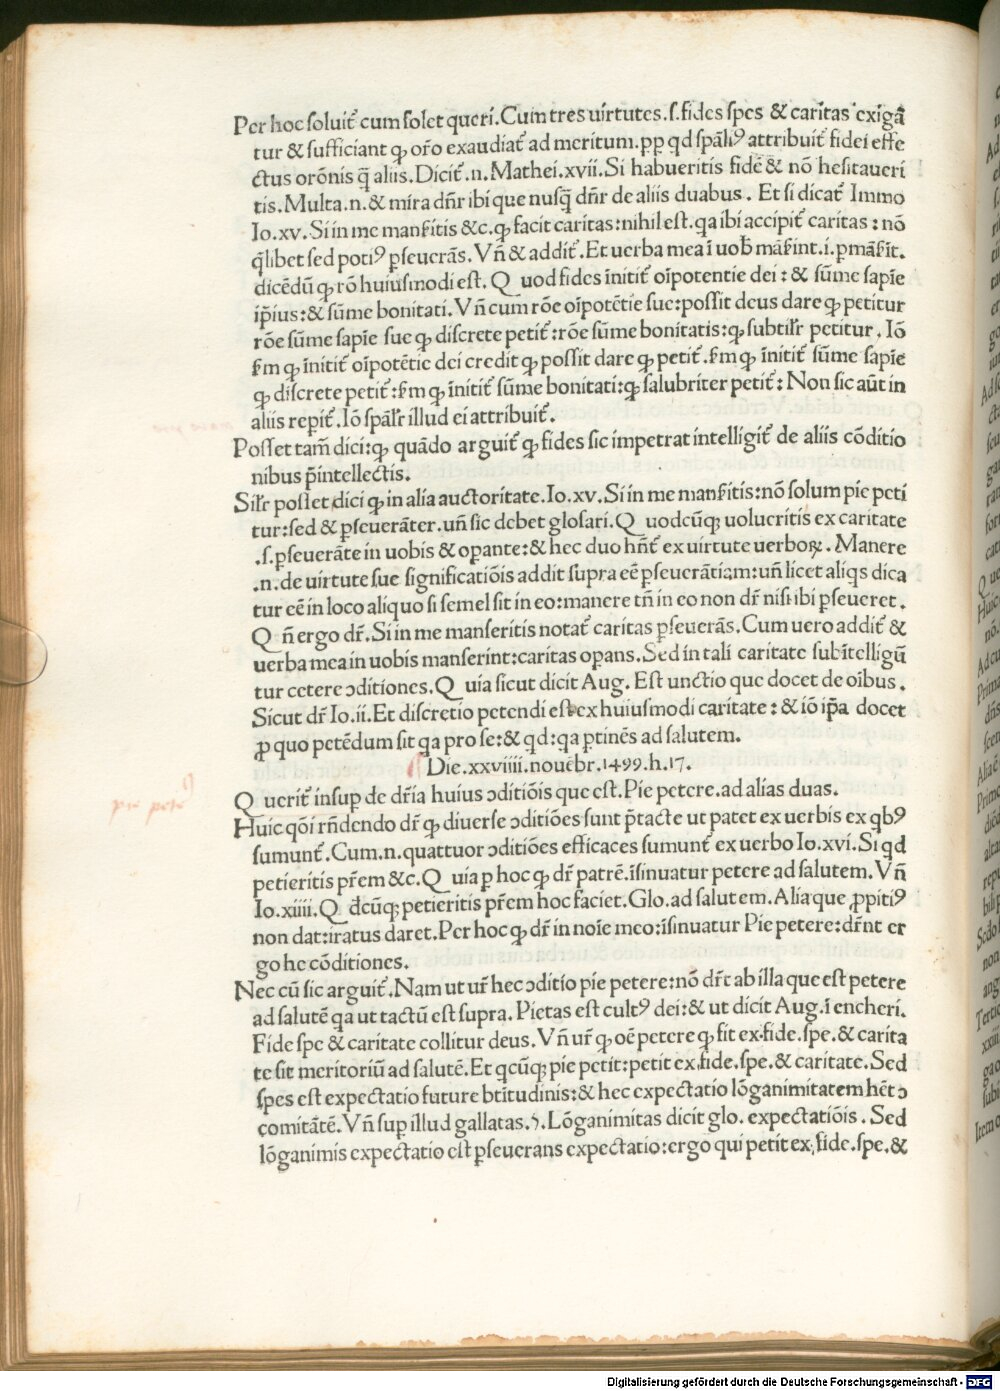 Per hoc soluit᷑ cum solet queri. Cum tres uirtutes .s. fides spes & caritas exigā
tur & sufficiant ꝙ or̄o exaudiat᷑ ad meritum .pp qd sp̄aliꝰ attribuit᷑ fidei effe
ctus orōnis q̄ aliis. Dicit᷑ .n. Mathei.xvii. Si habueritis fidē & nō hesitaueri
tis. Multa .n. & mira dn̄r ibi que nusq̄ dn̄r de aliis duabus. Et si dicat᷑ Immo
Io.xv. Si in me manẜitis &c. ꝙ facit caritas: nihil est. qa ibi accipit᷑ caritas: nō
q̄libet sed potiꝰ ꝑseuerās. Vn̄ & addit᷑. Et uerba mea ī uob̄ māẜint .i. ꝑmāẜīt.
dicēdū ꝙ rō huiusmodi est. Q uod fides īnitit᷑ oīpotentie dei: & sūme sapīe
ip̄ius: & sūme bonitati. Vn̄ cum rōe oīpotētie sue: possit deus dare ꝙ petitur
rōe sūme sapīe sue ꝙ discrete petit᷑: rōe sūme bonitatis: ꝙ subtilr̄ petitur. Iō
ẜm ꝙ īnitit᷑ oīpotētie dei credit ꝙ possit dare ꝙ petit᷑. ẜm ꝙ īnitit᷑ sūme sapīe
ꝙ discrete petit᷑: ẜm ꝙ īnitit᷑ sūme bonitati: ꝙ salubriter petit᷑: Non sic aūt in
aliis repit᷑. Iō sp̄alr̄ illud ei attribuit᷑.
Posset tam̄ dici: ꝙ quādo arguit᷑ ꝙ fides sic impetrat intelligit᷑ de aliis cōditio
nibus p̄intellectis.
Silr̄ posset dici ꝙ in alia auctoritate. Io.xv. Si in me manẜitis: nō solum pie peti
tur: sed & ꝑseuerāter. un̄ sic debet glosari. Q uodcūqꝫ uolueritis ex caritate
.s. ꝑseuerāte in uobis & oꝑante: & hec duo hn̄t᷑ ex uirtute uerboꝝ. Manere
.n. de uirtute sue significatiōis addit supra eē ꝑseuerātiam: un̄ licet aliqs dica
tur eē in loco aliquo si semel sit in eo: manere tn̄ in eo non dr̄ nisi ibi ꝑseueret.
Q n̄ ergo dr̄. Si in me manseritis notat᷑ caritas ꝑseuerās. Cum uero addit᷑ &
uerba mea in uobis manserint: caritas oꝑans. Sed in tali caritate subītelligū
tur cetere ↄditiones. Q uia sicut dicit Aug. Est unctio que docet de oibus.
Sicut dr̄ Io.ii. Et discretio petendi est ex huiusmodi caritate: & iō ip̄a docet
ꝓ quo petēdum sit qa pro se: & qd: qa ꝑtinēs ad salutem.
Die .xxviiii. nouēbr. 1499. h. 17.
Q uerit᷑ insuꝑ de dr̄ia huius ↄditiōis que est. Pie petere. ad alias duas.
Huic qōi rn̄dendo dr̄ ꝙ diuerse ↄditiōes sunt p̄tacte ut patet ex uerbis ex qbꝰ
sumunt᷑. Cum .n. quattuor ↄditiōes efficaces sumunt᷑ ex uerbo Io.xvi. Si qd
petieritis pr̄em &c. Q uia ꝑ hoc ꝙ dr̄ patrē. īsinuatur petere ad salutem. Vn̄
Io.xiiii. Q d̄cūqꝫ petieritis pr̄em hoc faciet. Glo. ad salutem. Alia que ꝓpitiꝰ
non dat: iratus daret. Per hoc ꝙ dr̄ in noīe meo: īsinuatur Pie petere: dr̄nt er
go he cōditiones.
Nec cū sic arguit᷑. Nam ut ur̄ hec ↄditio pie petere: nō dr̄t ab illa que est petere
ad salutē qa ut tactū est supra. Pietas est cultꝰ dei: & ut dicit Aug. ī encheri.
Fide spe & caritate collitur deus. Vn̄ ur̄ ꝙ oē petere ꝙ fit ex fide. spe. & carita
te sit meritoriū ad salutē. Et qcūqꝫ pie petit: petit ex fide. spe. & caritate. Sed
spes est expectatio future btītudinis: & hec expectatio lōganimitatem hēt ↄ
comitātē. Vn̄ suꝑ illud gallatas.5. Lōganimitas dicit glo. expectatiōis. Sed
lōganimis expectatio est ꝑseuerans expectatio: ergo qui petit ex fide. spe. &
Digitalisierung gefördert durch die Deutsche Forschungsgemeinschaft - DFG